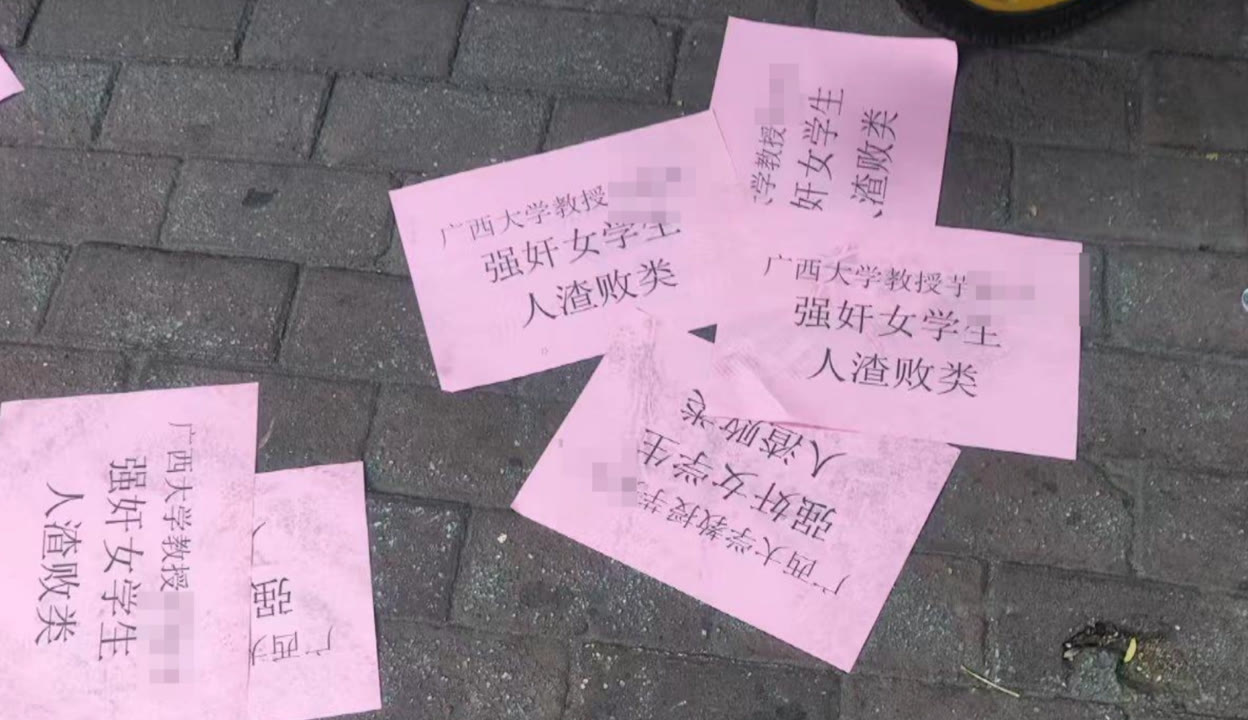 学教授
奸女学生
渣败类
广西大学教授
强奸女学生
人渣败类
广西大学教授
强奸女学生
人渣败类
广西大学教授
强奸女学生
人渣败类
广西大学教授
强奸女学生
人渣败类
广西
强